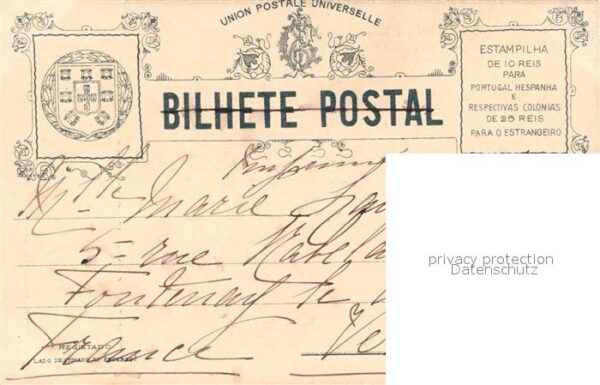 UNION POSTALE UNIVERSELLE
BILHETE POSTAL
ESTAMPILHA
DE 10 REIS
PARA
PORTUGAL HESPANHA
E
RESPECTIVAS COLONIAS
DE 25 REIS
PARA O ESTRANGEIRO
Mlle Marie
5 rue
Fontenay le
France Ve
privacy protection
Datenschutz
REGISTADO
LADO DESTINADO AO ENDEREÇO